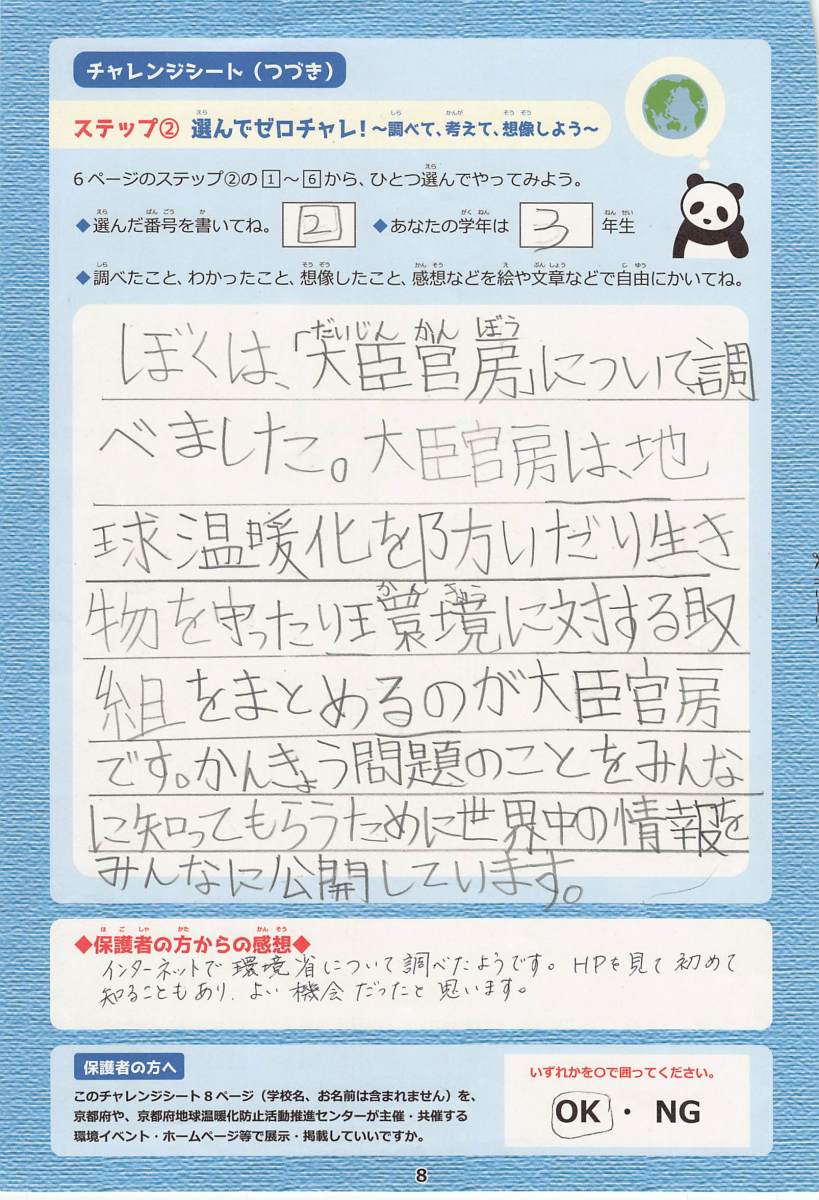 チャレンジシート（つづき）
ステップ② 選んでゼロチャレ！～調べて、考えて、想像しよう～
6ページのステップ②の1～6から、ひとつ選んでやってみよう。
◆選んだ番号を書いてね。 2 ◆あなたの学年は 3 年生
◆調べたこと、わかったこと、想像したこと、感想などを絵や文章などで自由にかいてね。
ぼくは、「大臣官房」について、調
べました。大臣官房は、地
球温暖化を防いだり生き
物を守ったり環境に対する取
組をまとめるのが大臣官房
です。かんきょう問題のことをみんな
に知ってもらうために世界中の情報を
みんなに公開しています。
◆保護者の方からの感想◆
インターネットで環境省について調べたようです。HPを見て初めて
知ることもあり、よい機会だったと思います。
保護者の方へ
このチャレンジシート8ページ（学校名、お名前は含まれません）を、
京都府や、京都府地球温暖化防止活動推進センターが主催・共催する
環境イベント・ホームページ等で展示・掲載していいですか。
いずれかを○で囲ってください。
OK・NG
8